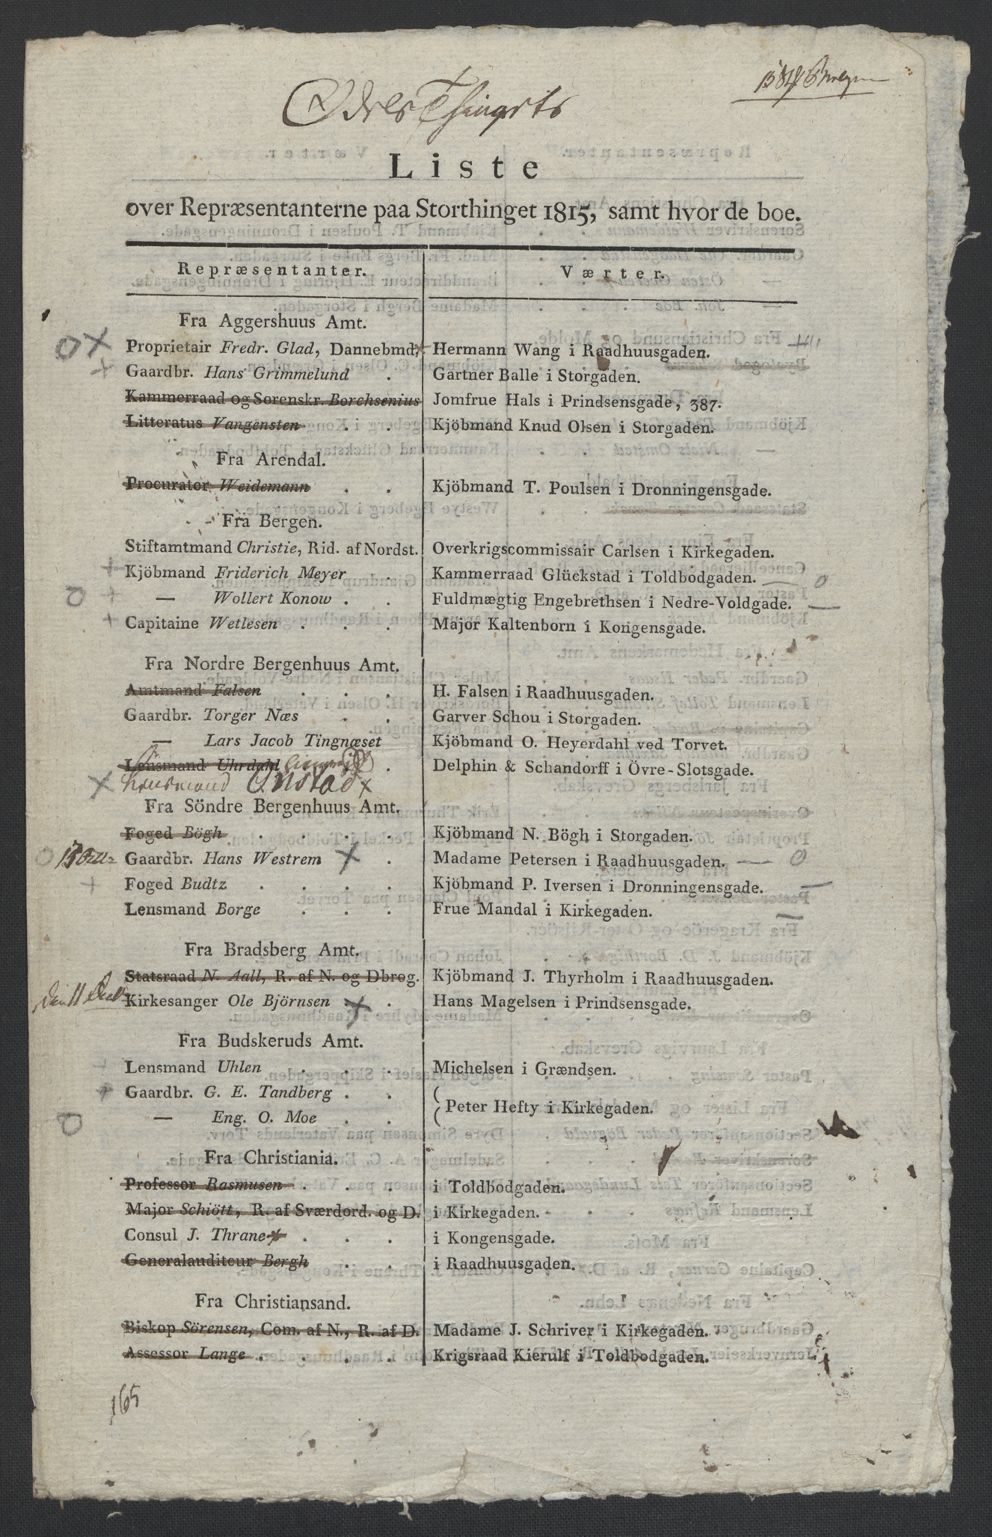 Odels Thingets
Liste
over Repræsentanterne paa Storthinget 1815, samt hvor de boe.
Repræsentanter. Værter.
Fra Aggershuus Amt.
Proprietair Fredr. Glad, Dannebmd. Hermann Wang i Raadhuusgaden.
Gaardbr. Hans Grimmelund . Gartner Balle i Storgaden.
Kammerraad og Sorenskr. Borchsenius Jomfrue Hals i Prindsensgade, 387.
Litteratus Vangensten . . . Kjöbmand Knud Olsen i Storgaden.
Fra Arendal.
Procurator Weidemann . . Kjöbmand T. Poulsen i Dronningensgade.
Fra Bergen.
Stiftamtmand Christie, Rid. af Nordst. Overkrigscommissair Carlsen i Kirkegaden.
Kjöbmand Friderich Meyer . Kammerraad Glückstad i Toldbodgaden.
— Wollert Konow . . Fuldmægtig Engebrethsen i Nedre-Voldgade.
Capitaine Wetlesen . . . Major Kaltenborn i Kongensgade.
Fra Nordre Bergenhuus Amt.
Amtmand Falsen . . . H. Falsen i Raadhuusgaden.
Gaardbr. Torger Næs . . Garver Schou i Storgaden.
— Lars Jacob Tingnæset Kjöbmand O. Heyerdahl ved Torvet.
Lensmand Uhrdahl . Delphin & Schandorff i Övre-Slotsgade.
Lensmand Onstad x
Fra Söndre Bergenhuus Amt.
Foged Bögh . . . . Kjöbmand N. Bögh i Storgaden.
Gaardbr. Hans Westrem x . Madame Petersen i Raadhuusgaden.
Foged Budtz . . . . Kjöbmand P. Iversen i Dronningensgade.
Lensmand Borge . . . Frue Mandal i Kirkegaden.
Fra Bradsberg Amt.
Statsraad N. Aall, R. af N. og Dbrog. Kjöbmand J. Thyrholm i Raadhuusgaden.
Kirkesanger Ole Björnsen x . Hans Magelsen i Prindsensgade.
Fra Budskeruds Amt.
Lensmand Uhlen . . . Michelsen i Grændsen.
Gaardbr. G. E. Tandberg . .
— Eng. O. Moe . . Peter Hefty i Kirkegaden.
Fra Christiania.
Professor Rasmusen . . . i Toldbodgaden.
Major Schiött, R. af Sværdord. og D. i Kirkegaden.
Consul J. Thrane . . . i Kongensgade.
Generalauditeur Bergh . . i Raadhuusgaden.
Fra Christiansand.
Biskop Sörensen, Com. af N., R. af D. Madame J. Schriver i Kirkegaden.
Assessor Lange . . . . Krigsraad Kierulf i Toldbodgaden.
165